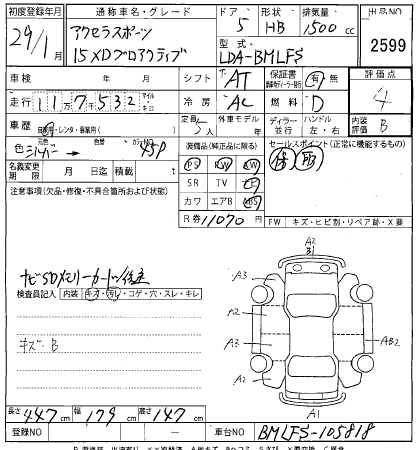 初度登録年月 通称車名・グレード ドア 形状 排気量 出品NO
29/1月 アクセラスポーツ 5 HB 1500cc 2599
15XDプロアクティブ 型式 LDA-BMLFS
車検 年 月 日 シフト AT 保証書 有・無 評価点
走行 117532 マイル キロ 冷房 AC 燃料 D 4
車歴 自家用・レンタ・事業用( ) 定員 5人 外車モデル 年 ディーラー 並行 ハンドル 左・右 内装評価 B
色 シルバー 元色 色替 カラーNO 45P 装備品(純正品に限る) セールスポイント(正常に機能するもの)
名義変更期限 月 日迄 積載 t PS AW 保 取
注意事項(欠品・修復・不具合箇所および状態) SR TV
カワ エアB ABS
R券 11070円 FW キズ・ヒビ割・リペア跡・X要
A2
B1
ナビSDメモリーカード/後送
検査員記入 内装 キズ・汚レ・コゲ・穴・スレ・キレ
キズ・B
A3 A3
A2
A3 AB2
A2 A2
A1
長さ 447cm 幅 179cm 高さ 147cm
登録NO — 車台NO BMLFS-105818